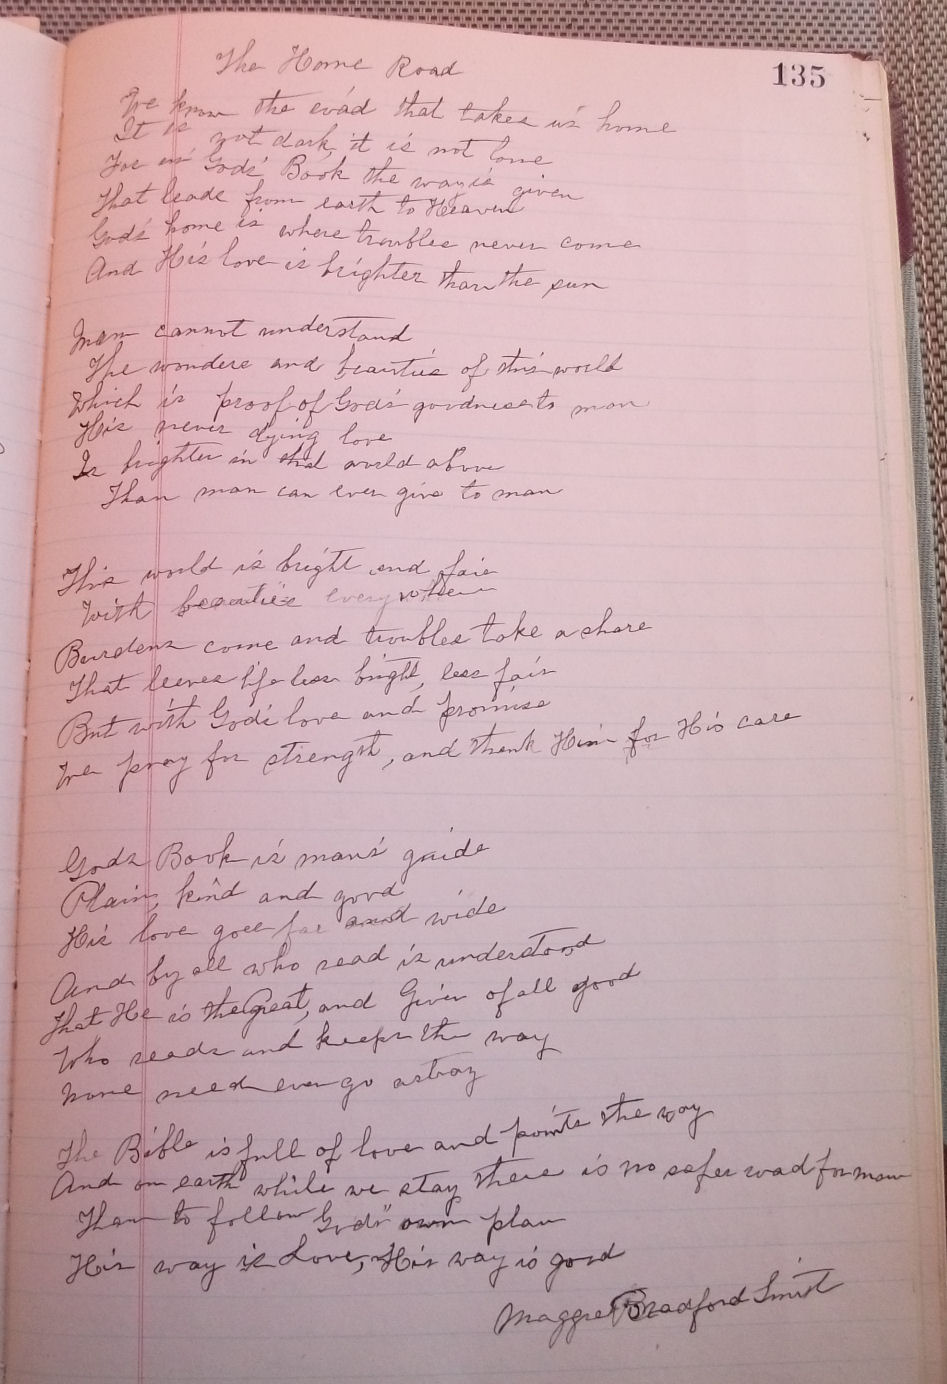 The Home Road
135
We know the road that takes us home
It is not dark, it is not lone
For in Gods' Book the way is given
That leads from earth to Heaven
Gods' home is where troubles never come
And His love is brighter than the sun
Man cannot understand
The wonders and beauties of this world
Which is proof of Gods' goodness to man
His never dying love
Is brighter in that world above
Than man can ever give to man
This world is bright and fair
With beauties everywhere
Burdens come and troubles take a share
That leaves life less bright, less fair
But with Gods' love and promise
We pray for strength, and thank Him for His care
Gods Book is mans' guide
Plain, kind and good
His love goes far and wide
And by all who read is understood
That He is the Great, and Giver of all good
Who reads and keeps the way
None need ever go astray
The Bible is full of love and points the way
And on earth while we stay there is no safer road for man
Than to follow Gods" own plan
His way is Love, His way is good
Maggie Bradford Smith